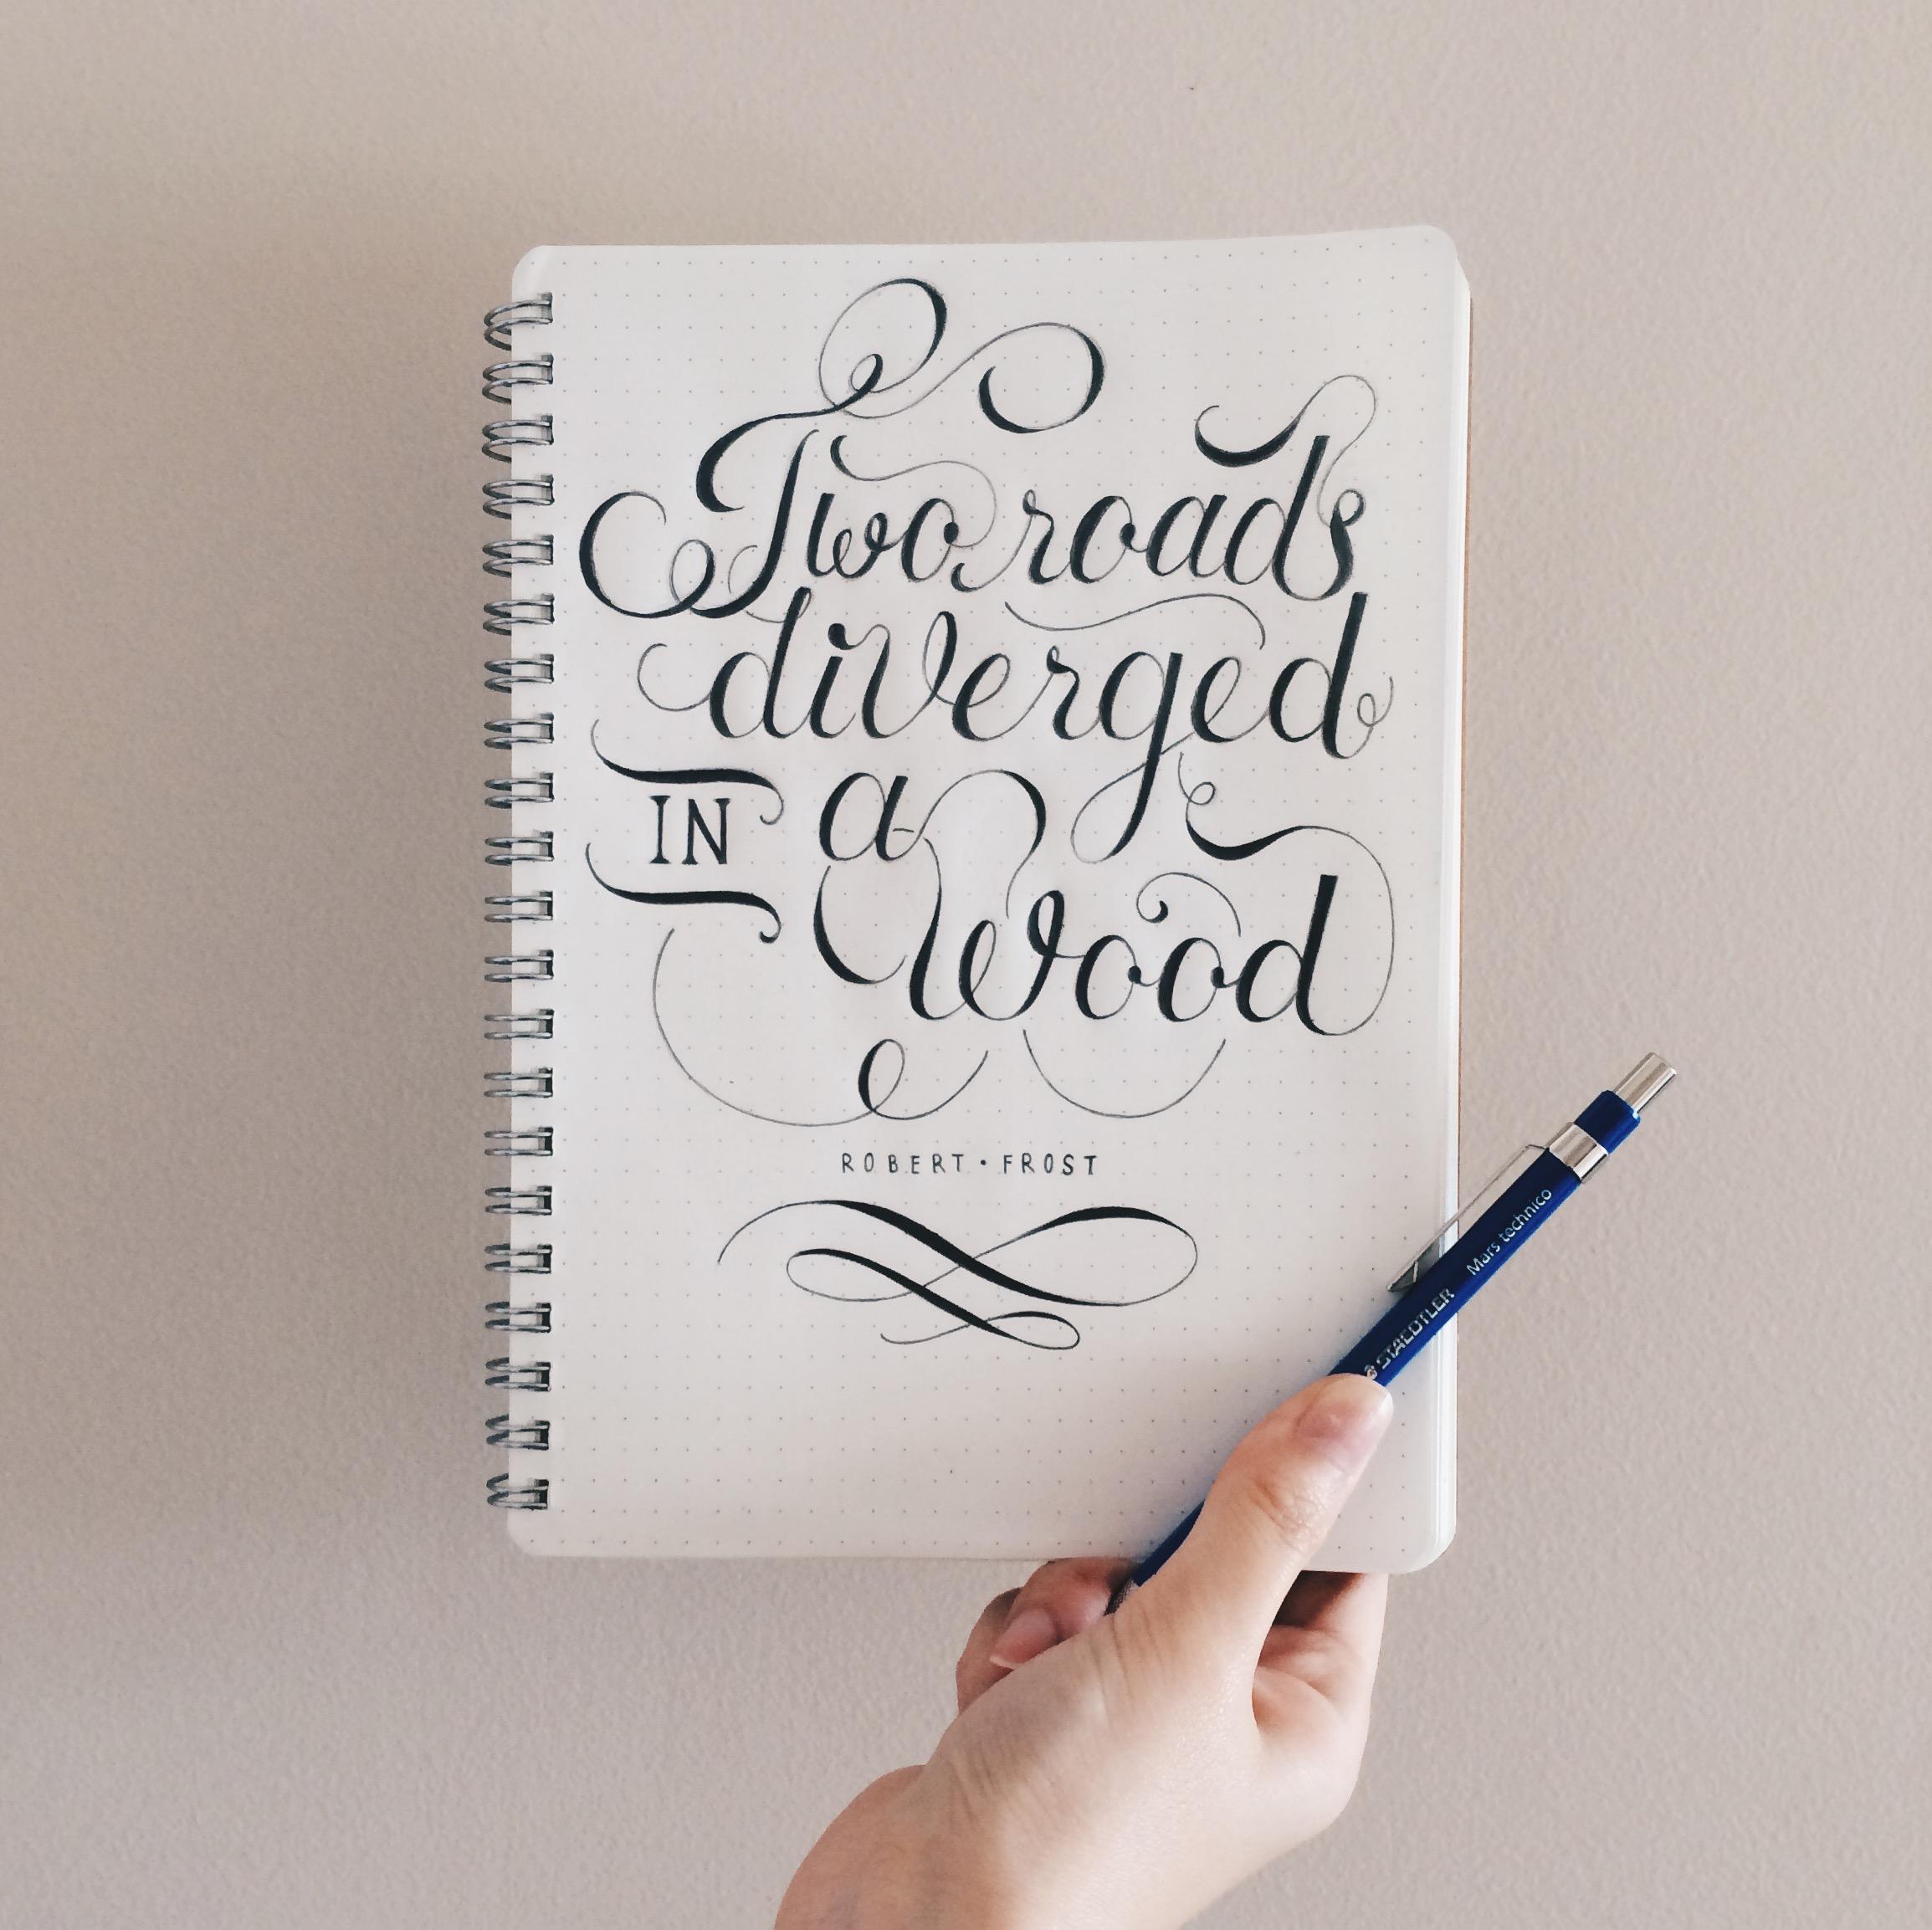 Two roads
diverged
IN a
Wood
ROBERT • FROST
STAEDTLER Mars technico